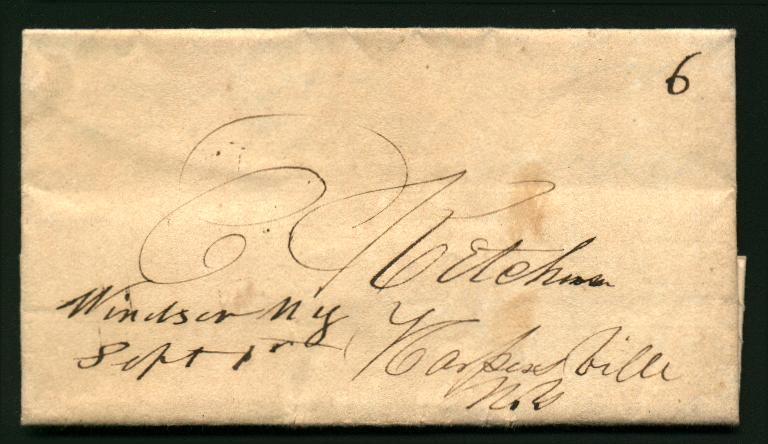 6
Ketchum
Windsor Ny
Sept 1st
Harpersville
N.Y